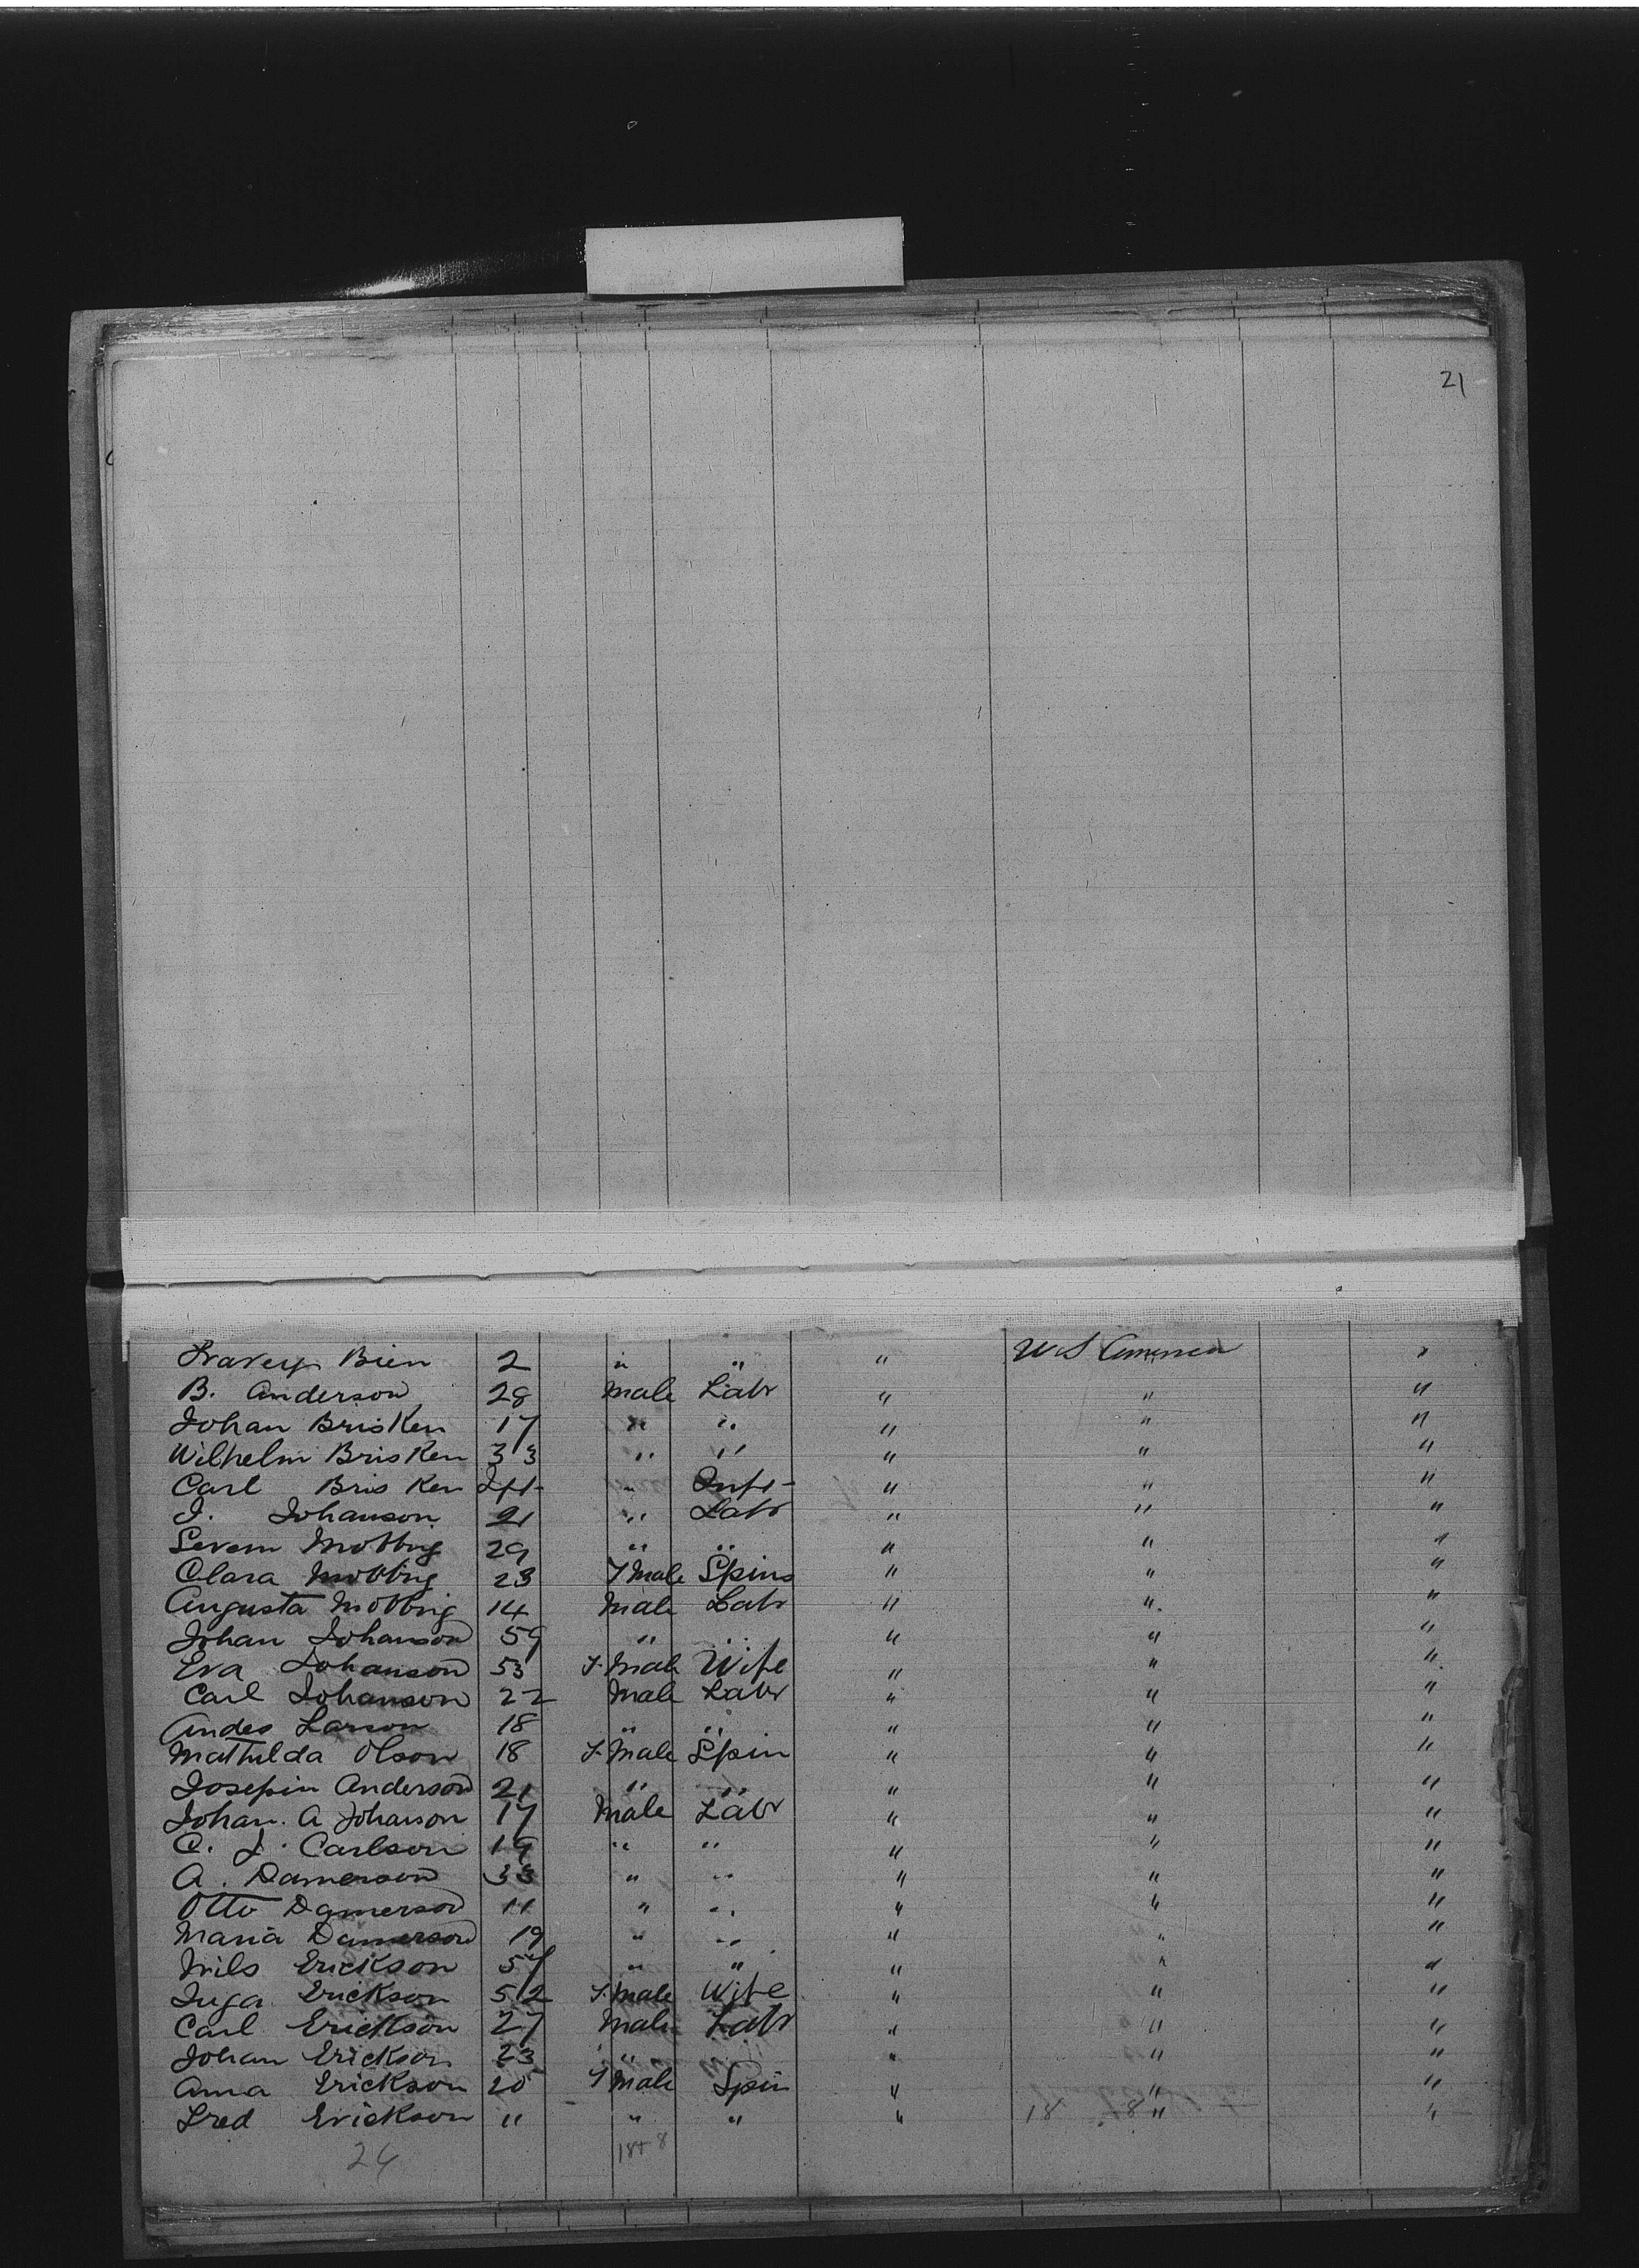 21
Bien 2 " " " U S America "
B. Anderson 28 Male Labr " " "
Johan Brisken 17 " " " " "
Wilhelm Brisken 33 " " " " "
Carl Brisken " Inft " " "
J. Johanson 21 " Labr " " "
Severn Mobbrig 29 " " " " "
Clara Mobbrig 23 F Male Spins " " "
Augusta Mobbrig 14 Male Labr " " "
Johan Johanson 59 " " " " "
Eva Johanson 53 F. Male Wife " " "
Carl Johanson 22 Male Labr " " "
Andes Larson 18 " " " " "
Mathilda Olson 18 F. Male Spin " " "
Josepin Anderson 21 " " " " "
Johan. A Johanson 17 Male Labr " " "
C. J. Carlson 19 " " " " "
A. Damerson 33 " " " " "
Otto Damerson 11 " " " " "
Maria Damerson 19 " " " " "
Nils Erickson 57 " " " " "
Inga Erickson 52 F. Male Wife " " "
Carl Erickson 27 Male Labr " " "
Johan Erickson 23 " " " " "
Anna Erickson 20 F Male Spin " " "
Fred Erickson 11 " " " " "
26 18+8